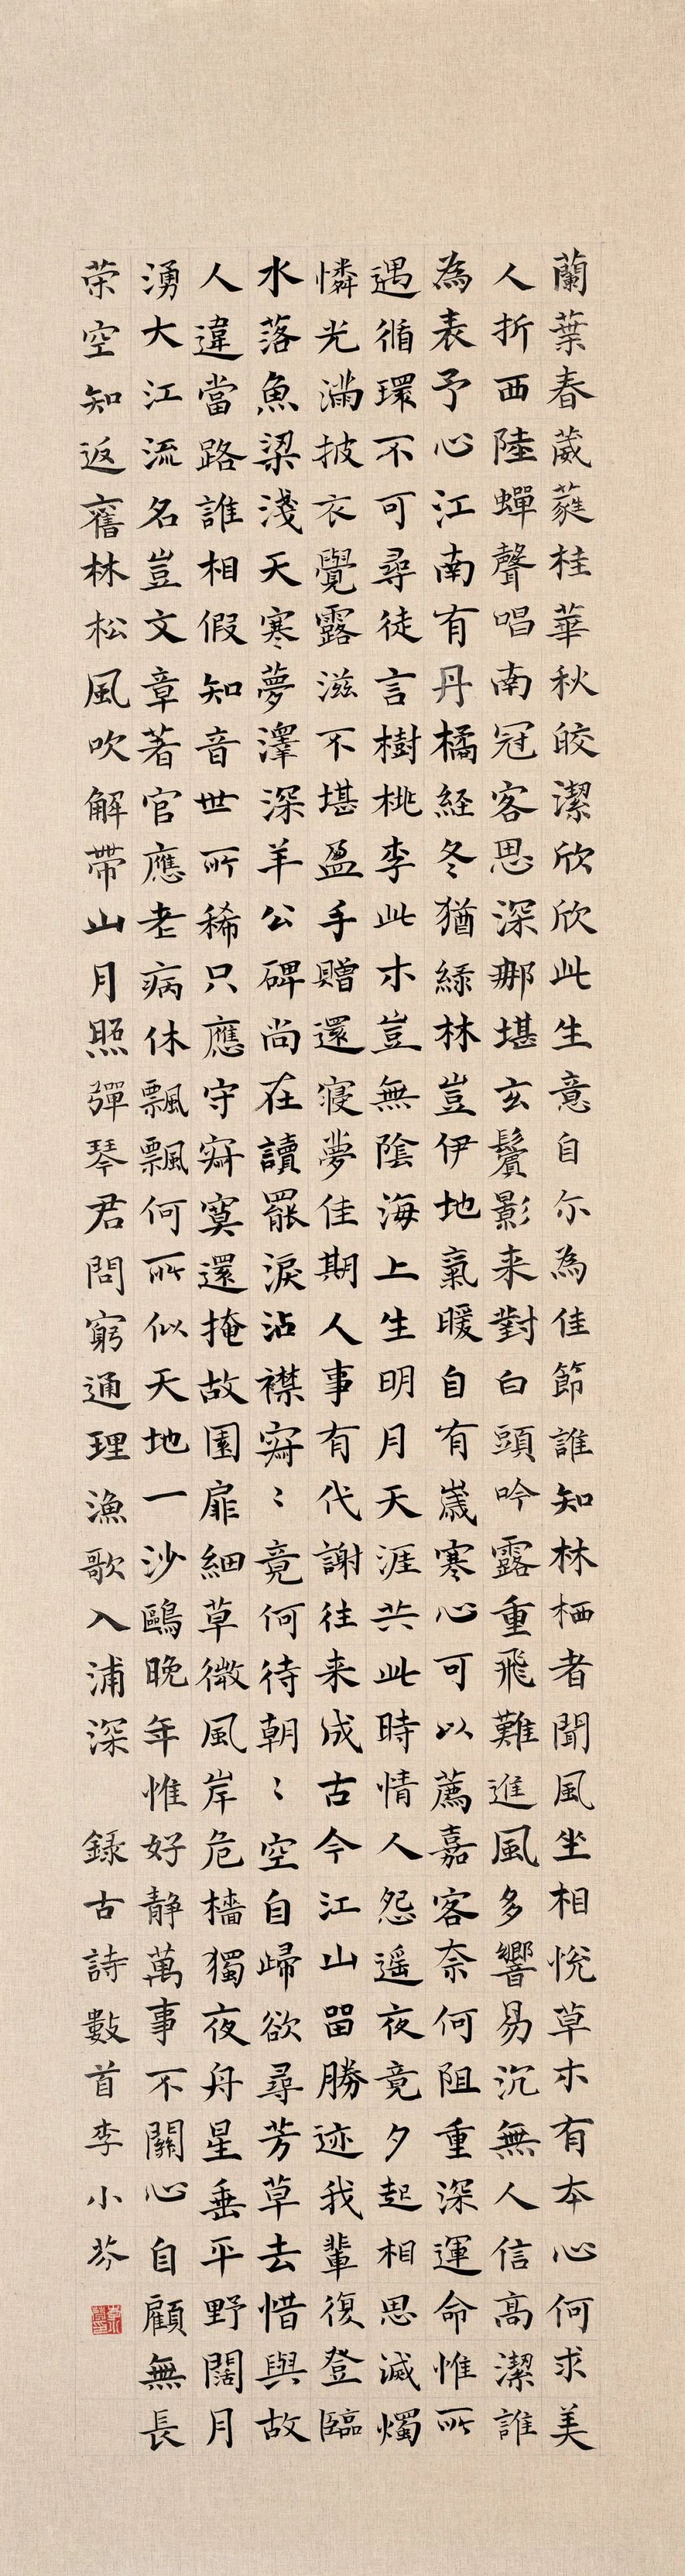 蘭葉春葳蕤桂華秋皎潔欣欣此生意自尓為佳節誰知林栖者聞風坐相悅草木有本心何求美
人折西陸蟬聲唱南冠客思深那堪玄鬢影来對白頭吟露重飛難進風多響易沉無人信高潔誰
為表予心江南有丹橘経冬猶緑林豈伊地氣暖自有歲寒心可以薦嘉客奈何阻重深運命惟所
遇循環不可尋徒言樹桃李此木豈無陰海上生明月天涯共此時情人怨遥夜竟夕起相思滅燭
憐光滿披衣覺露滋不堪盈手贈還寢夢佳期人事有代謝往来成古今江山留勝迹我輩復登臨
水落魚梁淺天寒夢澤深羊公碑尚在讀罷淚沾襟寂〻竟何待朝〻空自歸欲尋芳草去惜與故
人違當路誰相假知音世所稀只應守寂寞還掩故園扉細草微風岸危檣獨夜舟星垂平野闊月
湧大江流名豈文章著官應老病休飄飄何所似天地一沙鷗晚年惟好静萬事不關心自顧無長
策空知返舊林松風吹解帶山月照彈琴君問窮通理漁歌入浦深 録古詩數首李小芬